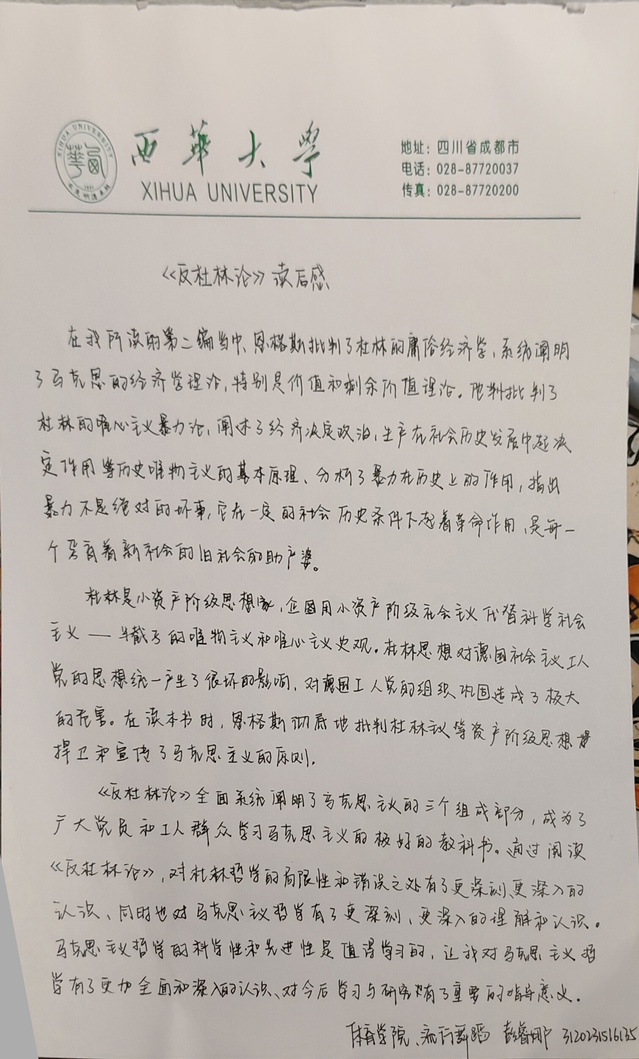 西华大学
XIHUA UNIVERSITY
地址: 四川省成都市
电话: 028-87720037
传真: 028-87720200
XIHUA UNIVERSITY
《反杜林论》读后感
在我所读的第二编当中、恩格斯批判了杜林的庸俗经济学,系统阐明
了马克思的经济学理论,特别是价值和剩余价值理论。批判了
杜林的唯心主义暴力论,阐述了经济决定政治,生产在社会历史发展中起决
定作用等历史唯物主义的基本原理、分析了暴力在历史上的作用,指出
暴力不是绝对的坏事,它在一定的社会历史条件下起着革命作用,是每一
个孕育着新社会的旧社会的助产婆。
杜林是小资产阶级思想家,企图用小资产阶级社会主义代替科学社会
主义——半截子的唯物主义和唯心主义史观。杜林思想对德国社会主义工人
党的思想统一产生了很坏的影响,对德国工人党的组织巩固造成了极大
的危害。在读本书时,恩格斯彻底地批判杜林议等资产阶级思想
捍卫和宣传了马克思主义的原则。
《反杜林论》全面系统阐明了马克思主义的三个组成部分,成为了
广大党员和工人群众学习马克思主义的极好的教科书。通过阅读
《反杜林论》,对杜林哲学的局限性和错误之处有了更深刻、更深入的
认识、同时也对马克思主义哲学有了更深刻、更深入的理解和认识。
马克思主义哲学的科学性和先进性是值得学习的,让我对马克思主义哲
学有了更加全面和深入的认识、对今后学习与研究有了重要的指导意义。
体育学院、舞蹈 彭睿娜 3120231516135